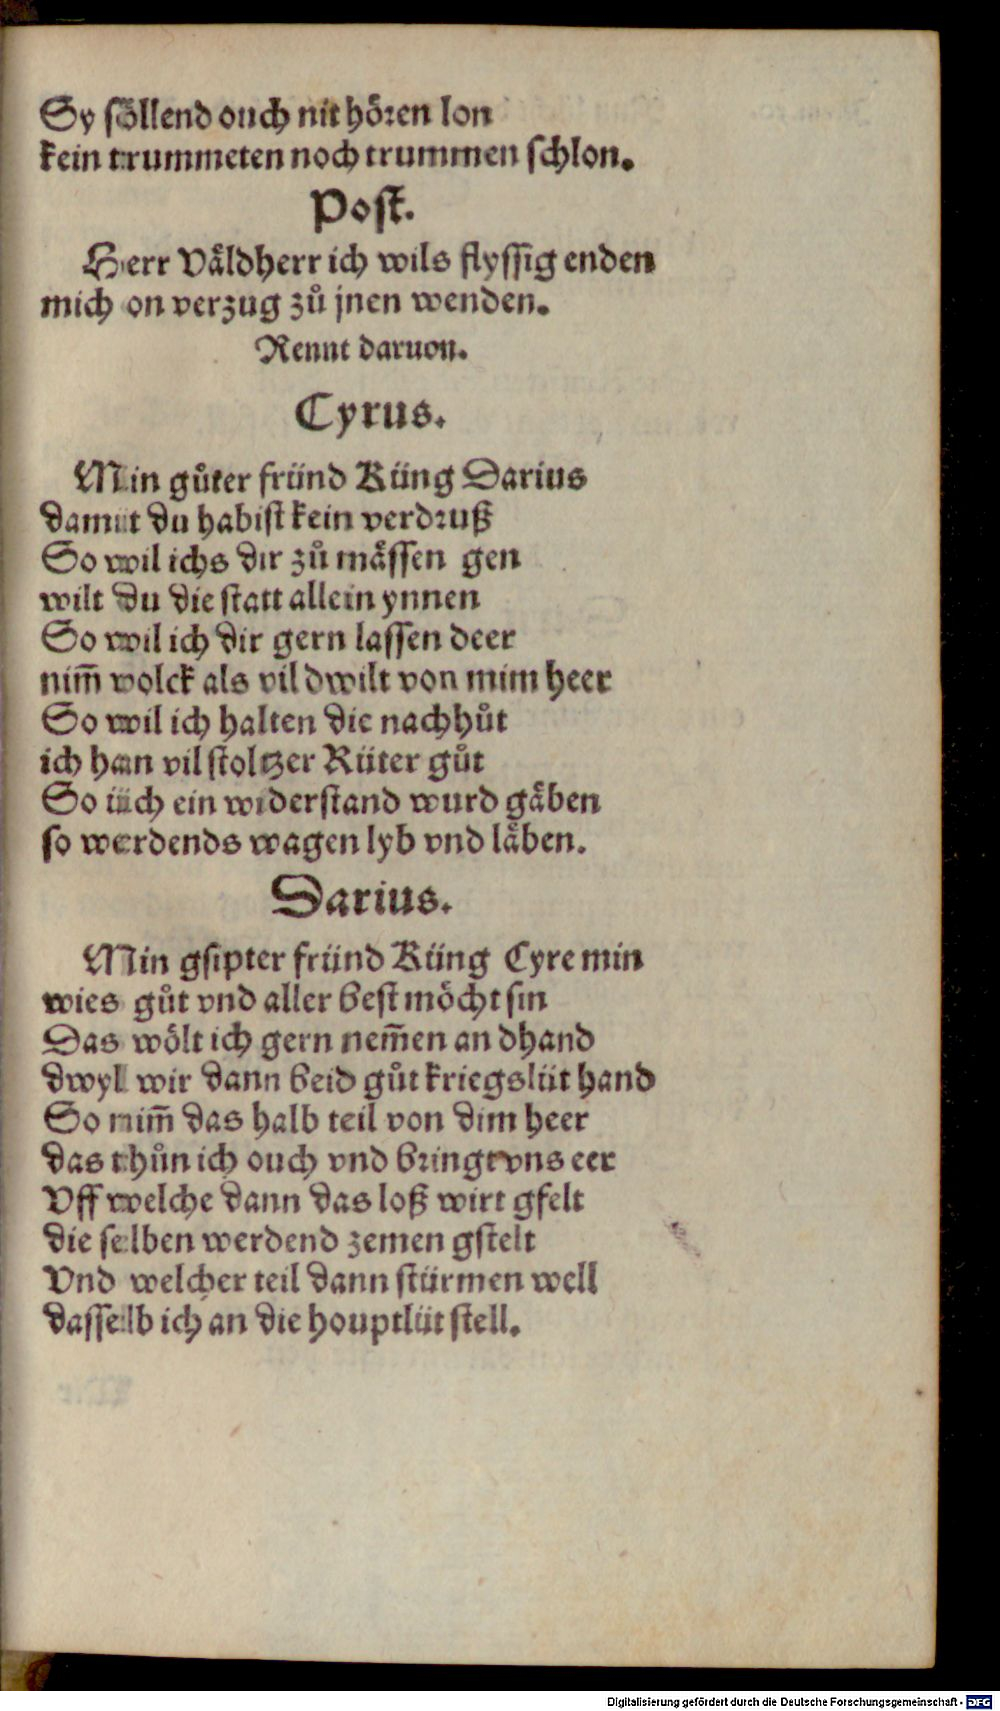 Sy söllend ouch nit hören lon
kein trummeten noch trummen schlon.
Post.
Herr Väldherr ich wils flyssig enden
mich on verzug zů jnen wenden.
Rennt daruon.
Cyrus.
Min gůter fründ Küng Darius
damit du habist kein verdruß
So wil ichs dir zů mässen gen
wilt du die statt allein ynnen
So wil ich dir gern lassen deer
nim̃ volck als vil dwilt von mim heer
So wil ich halten die nachhůt
ich han vil stoltzer Rüter gůt
So üch ein widerstand wurd gäben
so werdends wagen lyb vnd läben.
Darius.
Min gsipter fründ Küng Cyre min
wies gůt vnd aller best möcht sin
Das wölt ich gern nem̃en an dhand
dwyl wir dann beid gůt kriegslüt hand
So nim̃ das halb teil von dim heer
das thůn ich ouch vnd bringt vns eer
Vff welche dann das loß wirt gfelt
die selben werdend zemen gstelt
Vnd welcher teil dann stürmen well
dasselb ich an die houptlüt stell.
Digitalisierung gefördert durch die Deutsche Forschungsgemeinschaft - DFG